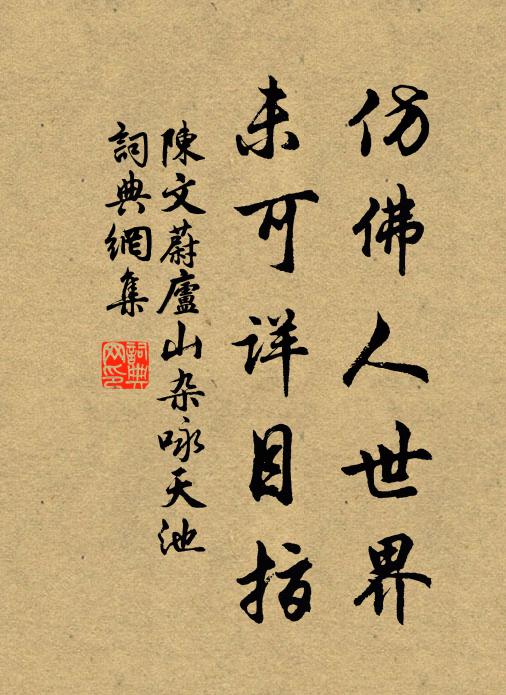 仿佛人世界
未可详目指
陳文蔚廬山杂咏天池
詞典網集
詞典网印